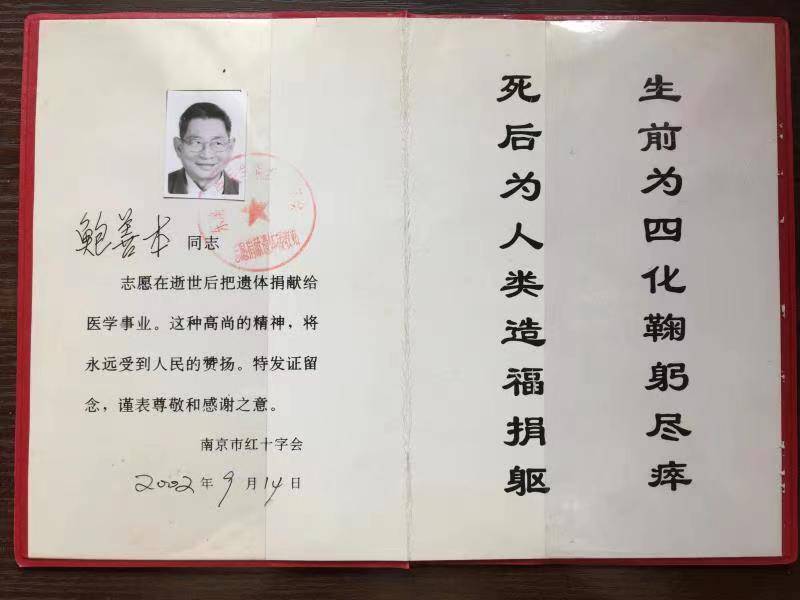 鲍善本 同志
志愿在逝世后把遗体捐献给
医学事业。这种高尚的精神，将
永远受到人民的赞扬。特发证留
念，谨表尊敬和感谢之意。
南京市红十字会
2002年9月14日
生前为四化鞠躬尽瘁
死后为人类造福捐躯